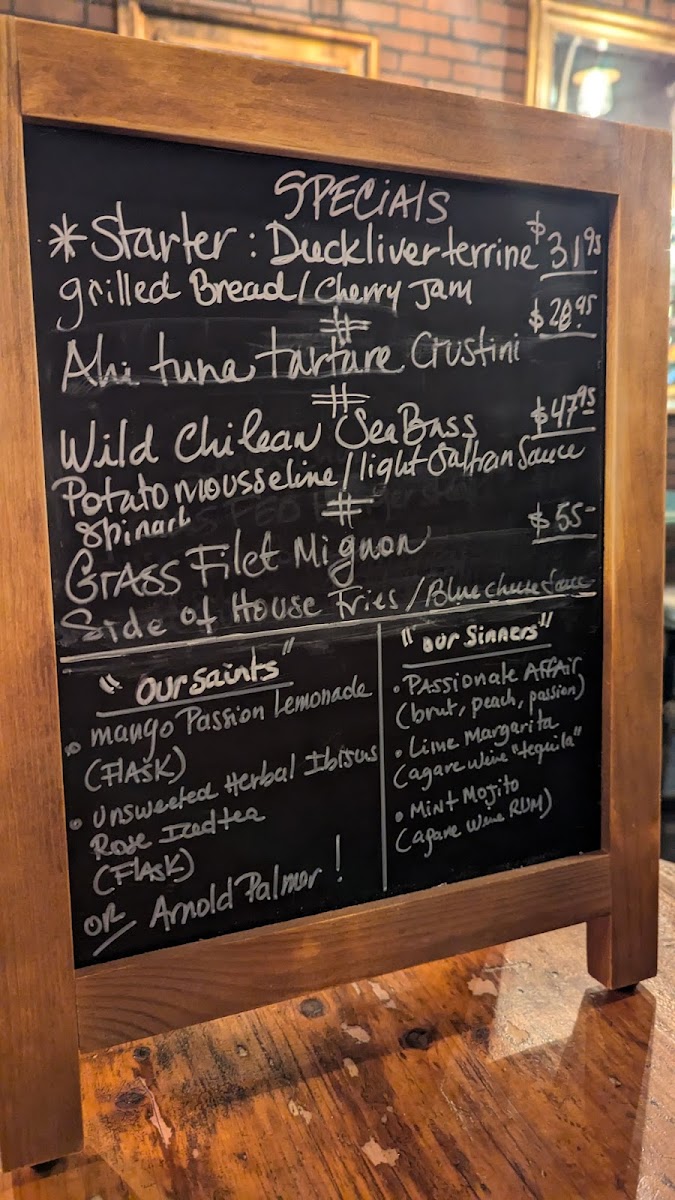 SPECiAlS
*Starter: Duckliver terrine $31.95
grilled Bread/Cherry Jam
#
Ahi tuna tartare Crustini $28.95
#
Wild Chilean SeaBass $47.95
Potato mousseline/light Saffran Sauce
Spinart
#
GRASS Filet Mignon $55-
Side of House Fries/Blue cheese Sauce
"OUR SAints"
• mango Passion Lemonade
(FlASK)
• Unsweeted Herbal Ibiscus
Rose Iced tea
(FlASK)
OR Arnold Palmer!
"OUR Sinners"
• PASSIONATE AFFAiR
(brut, peach, passion)
• Lime Margarita
(agave wine "tequila"
• Mint Mojito
(agave wine RUM)